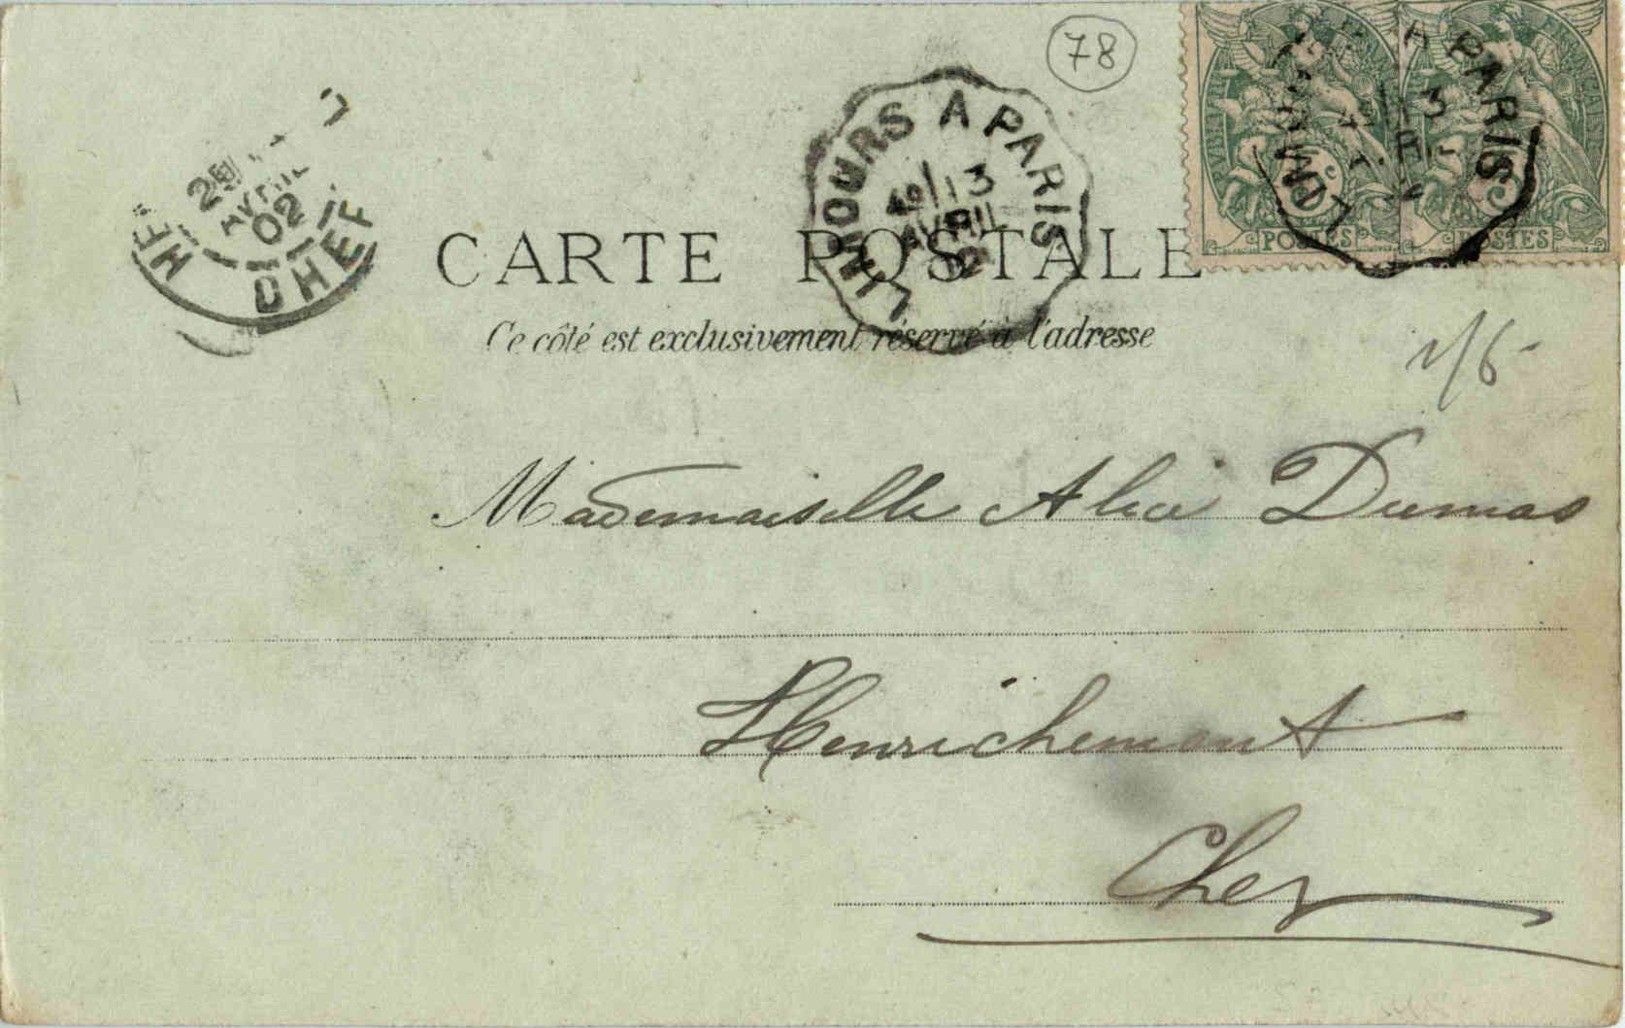 78
LIMOURS A PARIS
13
AVRIL
02
PARIS
13
POSTES POSTES
AVRIL
02
CHER
CARTE POSTALE
Ce côté est exclusivement réservé à l'adresse
Mademoiselle Alice Dumas
Henrichemont
Cher